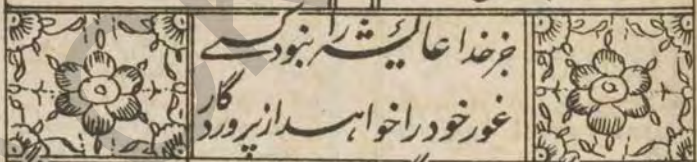 جز خدا عایشه را نبود کسے
غور خود را خواهد از پروردگار